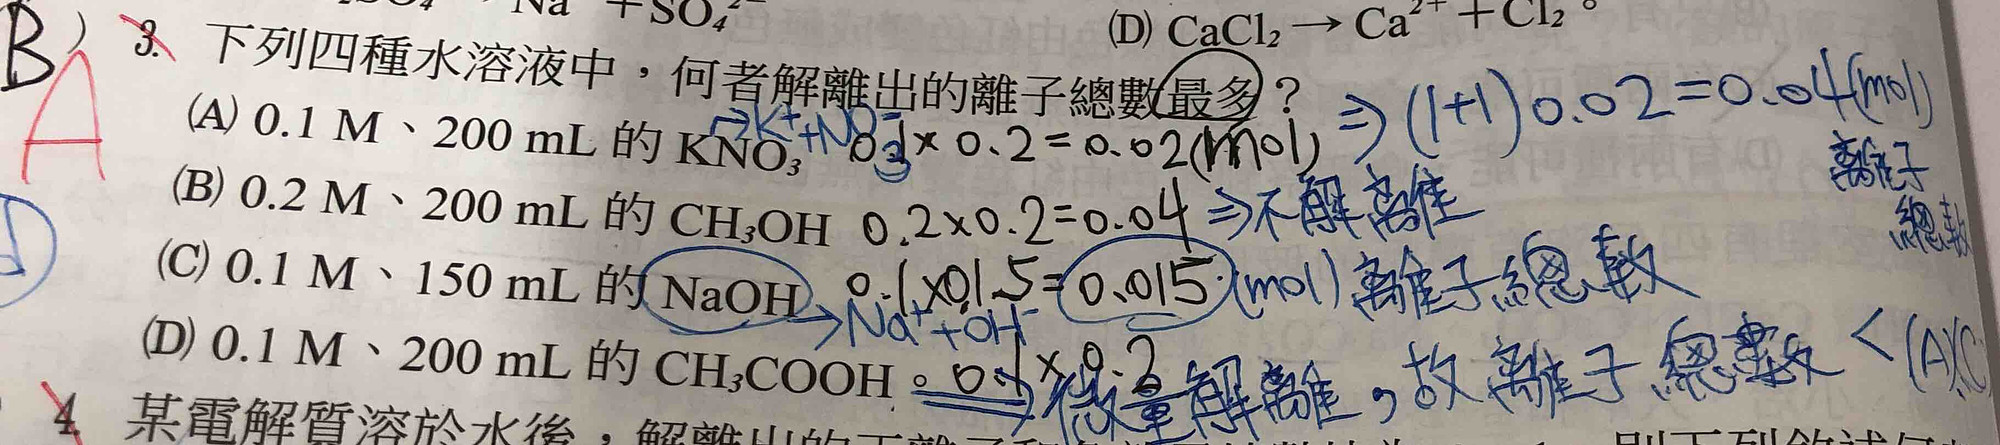 Na⁺ + SO₄²⁻
(D) CaCl₂ → Ca²⁺ + Cl₂。
B) 3. 下列四種水溶液中，何者解離出的離子總數最多？
A
(A) 0.1 M、200 mL 的 KNO₃ → K⁺ + NO₃⁻ 0.1 × 0.2 = 0.02 (mol) ⇒ (1+1) 0.02 = 0.04 (mol)
離子
總數
(B) 0.2 M、200 mL 的 CH₃OH 0.2 × 0.2 = 0.04 ⇒ 不解離
(C) 0.1 M、150 mL 的 NaOH 0.1 × 0.15 = 0.015 (mol) 離子總數
→ Na⁺ + OH⁻
(D) 0.1 M、200 mL 的 CH₃COOH。 0.1 × 0.2
⇒ 微量解離，故離子總數 < (A)(C
4. 某電解質溶於水後，解離出的